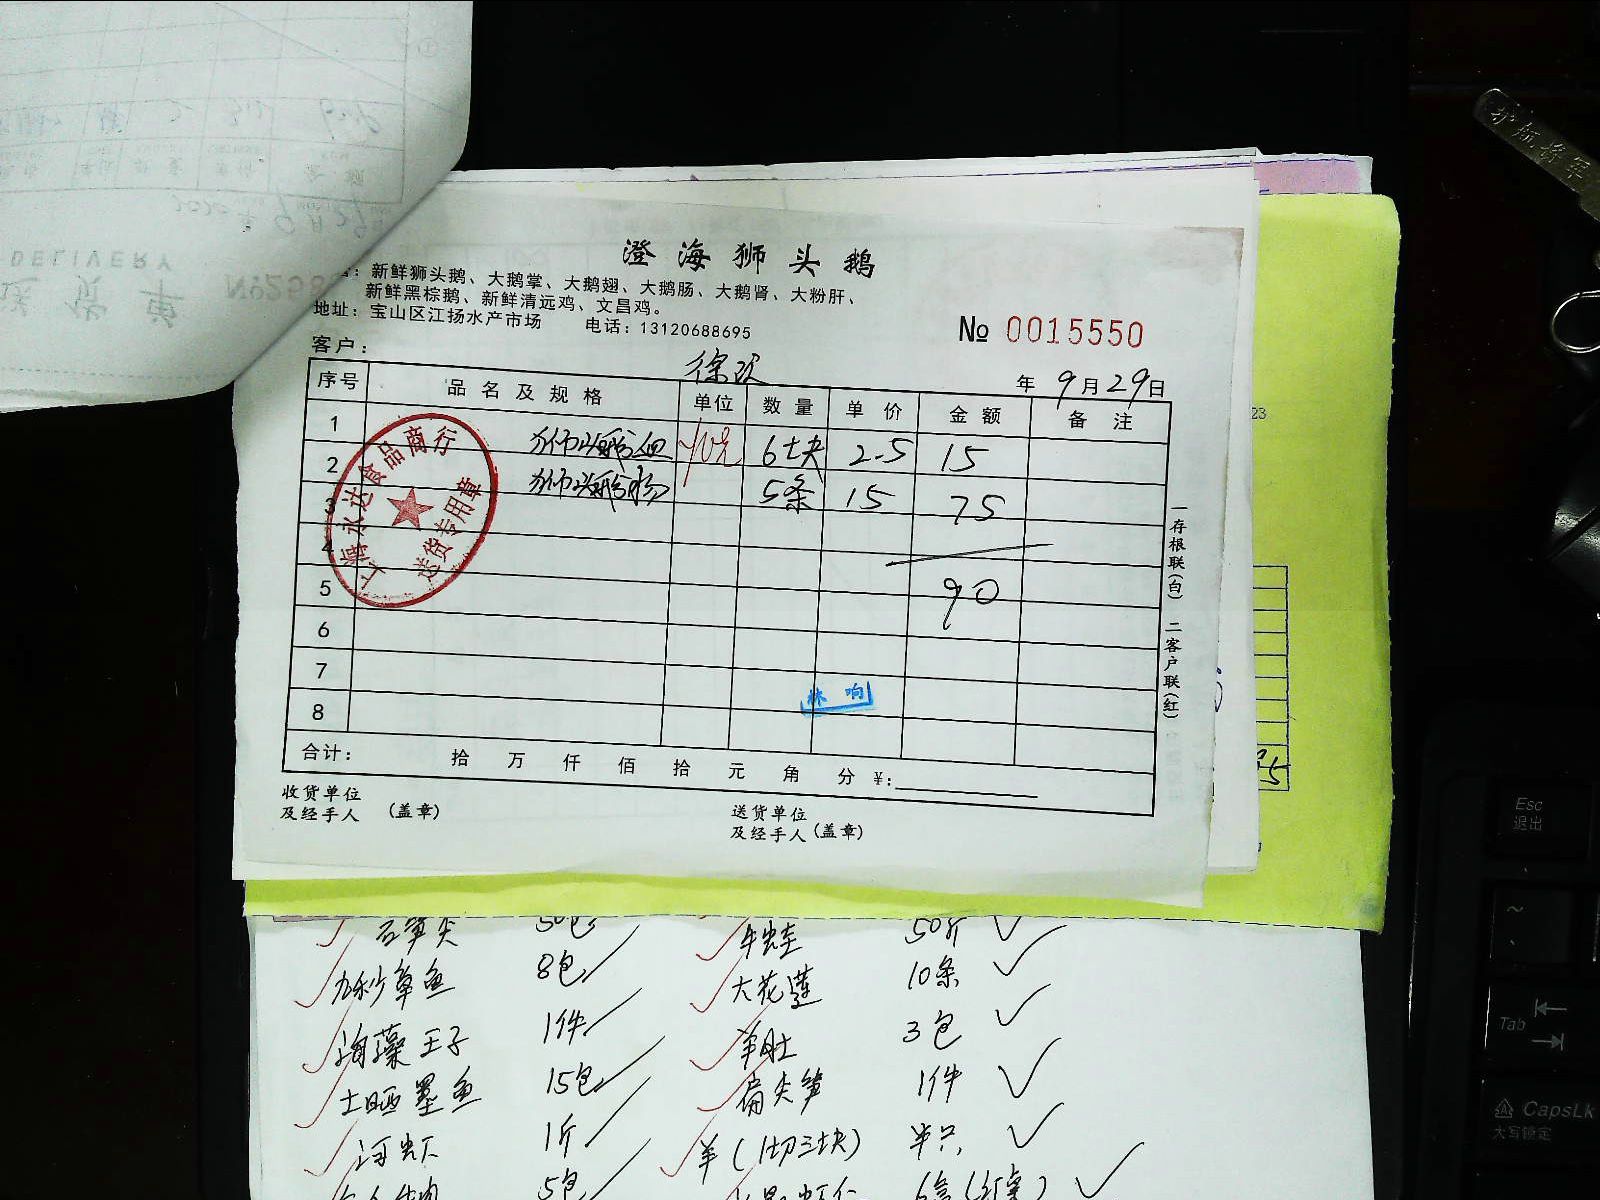 澄海狮头鹅
新鲜狮头鹅、大鹅掌、大鹅翅、大鹅肠、大鹅肾、大粉肝、
新鲜黑棕鹅、新鲜清远鸡、文昌鸡。
地址：宝山区江扬水产市场 电话：13120688695
№ 0015550
客户：
年 9月29日
序号 品名及规格 单位 数量 单价 金额 备注
1 狮头鹅血 6块 2.5 15
2 狮头鹅肠 5条 15 75
3
4
5 90
6
7
8
林响
合计： 拾 万 仟 佰 拾 元 角 分 ¥：
收货单位
及经手人 （盖章）
送货单位
及经手人（盖章）
一存根联（白） 二客户联（红）
上海永达食品商行
送货专用章
DELIVERY
2020年9月29
护航将军
23
石笋尖 50包 牛蛙 50斤
八秒章鱼 8包 大花莲 10条
海藻王子 1件 羊肚 3包
土晒墨鱼 15包 扁尖笋 1件
河虾 1斤 羊（1切三块） 半只
5包
Esc
退出
~
Tab
CapsLk
大写锁定